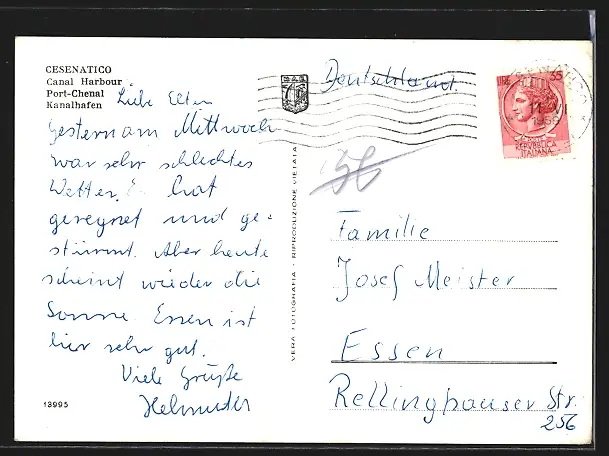 CESENATICO
Canal Harbour
Port-Chenal
Kanalhafen
Liebe Eltern
Gestern am Mittwoch
war sehr schlechtes
Wetter. Es hat
geregnet und ge-
stürmt. Aber heute
scheint wieder die
Sonne. Essen ist
hier sehr gut.
Viele Grüße
Helmuter
13995
VERA FOTOGRAFIA - RIPRODUZIONE VIETATA
Deutschland.
LIRE 55
REPUBBLICA
ITALIANA
Familie
Josef Meister
Essen
Rellinghauser Str.
256